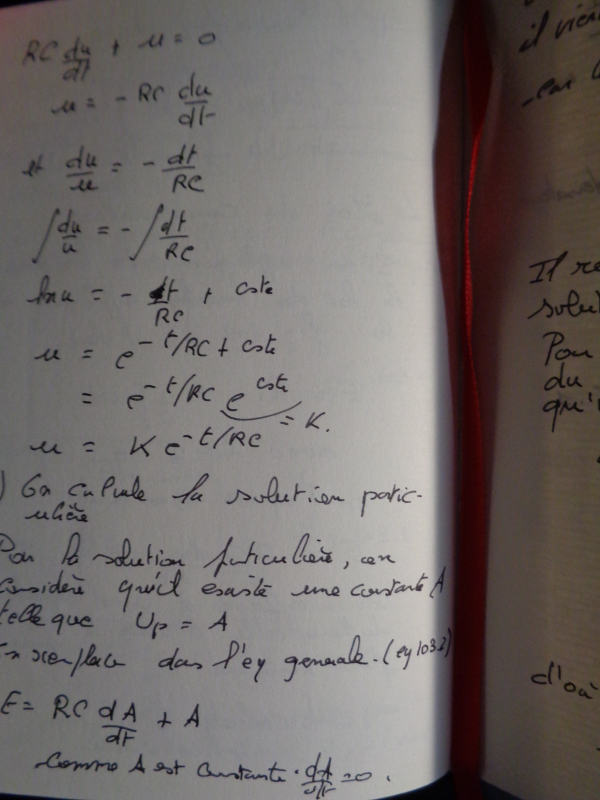 RC du/dt + u = 0
u = - RC du/dt
et du/u = - dt/RC
∫ du/u = - ∫ dt/RC
ln u = - t/RC + cste
u = e^(- t/RC + cste)
= e^(- t/RC) e^(cste) = K.
u = K e^(- t/RC)
) On calcule la solution partic-
ulière
Pour la solution particulière, on
considère qu'il existe une constante A
telle que Up = A
En remplace dans l'eq generale. (eq 103.2)
E = RC dA/dt + A
Comme A est constante. dA/dt = 0.
il vien
car
Il re
solut
Pour
du
qu'
d'où